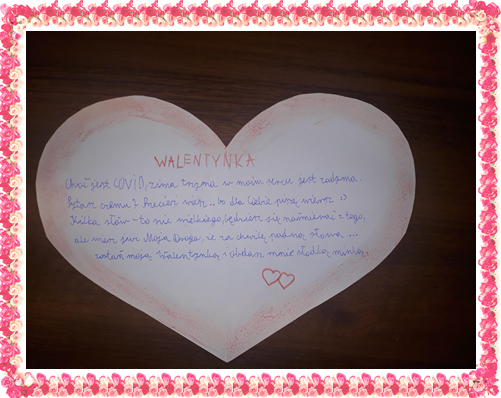 WALENTYNKA
Choć jest COVID, zima trzyma w moim sercu jest radzima.
Pytasz czemu? Przecież wiesz.. bo dla Ciebie piszę wiersz :)
Kilka słów - to nic wielkiego, będziesz się naśmiewać z tego,
ale wiesz już Moja Droga, że za chwilę padną słowa ...
zostań moją Walentynką i obdarz mnie słodką minką.